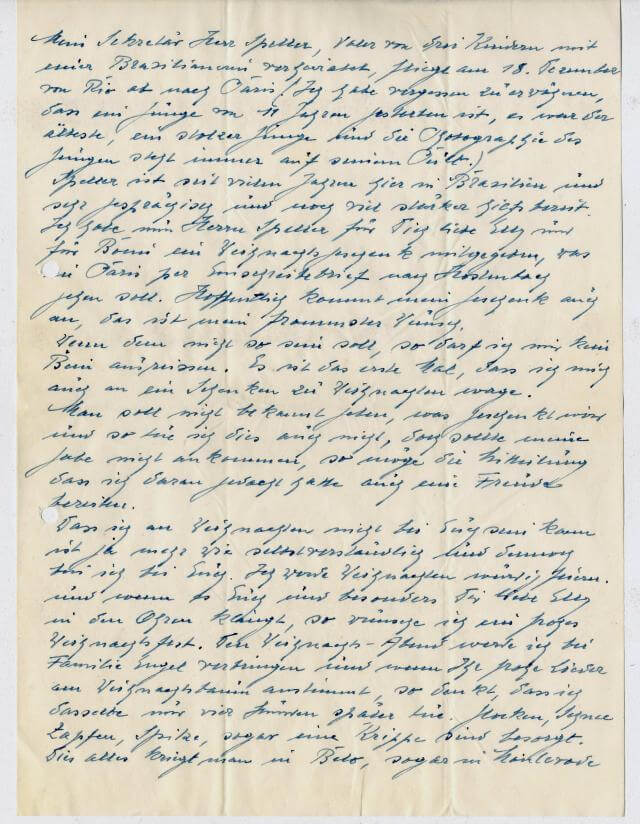 Mein Sekretär Herr Speller, Vater von drei Kindern mit
einer Brasilianerin verheiratet, fliegt am 18. Dezember
von Rio ab nach Paris! Ich habe vergessen zu erwähnen,
dass ein Junge von 11 Jahren gestorben ist, es war der
älteste, ein stolzer Junge und die Photographie des
Jungen steht immer auf seinem Pult.)
Speller ist seit vielen Jahren hier in Brasilien und
sehr gesprächig und noch viel stärker hilfsbereit.
Ich habe nun Herrn Speller für Dich liebe Elly und
für Bömi ein Weihnachtsgeschenk mitgegeben, das
in Paris per Einschreibebrief nach
gehen soll. Hoffentlich kommt mein Geschenk auch
an, das ist mein frommster Wunsch.
Wenn dem nicht so sein soll, so darf ich mir kein
Bein ausreissen. Es ist das erste Mal, dass ich mich
auch an ein Schenken zu Weihnachten wage.
Man soll nicht bekannt geben, was geschenkt wird
und so tue ich dies auch nicht, doch sollte meine
Gabe nicht ankommen, so möge die Mitteilung
dass ich daran gedacht hatte auch eine Freude
bereiten.
Dass ich an Weihnachten nicht bei Euch sein kann
ist ja mehr wie selbstverständlich und dennoch
bin ich bei Euch. Ich werde Weihnachten würdig feiern.
und wenn es Euch und besonders Dir liebe Elly
in den Ohren klingt, so wünsche ich ein frohes
Weihnachtsfest. Den Weihnachts-Abend werde ich bei
Familie Engel verbringen und wenn Ihr frohe Lieder
am Weihnachtsbaum anstimmt, so denkt, dass ich
dasselbe nur vier Stunden später tue. Glocken, Schnee
Zapfen, Spitze, sogar eine Krippe sind besorgt.
Dies alles kriegt man in Belo, sogar in